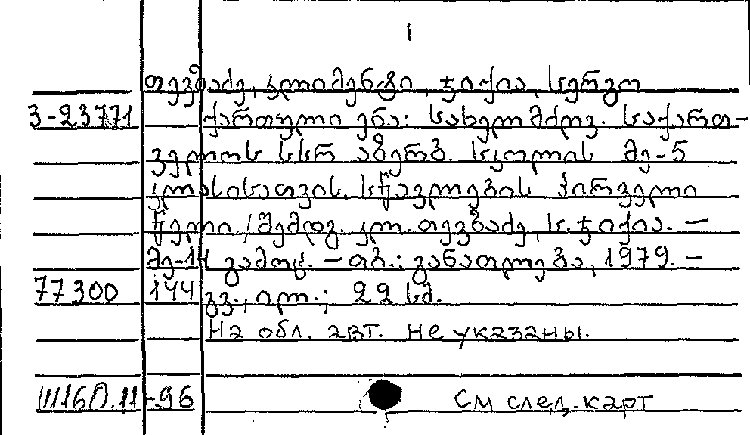 1
თევზაძე, კლიმენტი, ჭიჭია, სერგო
3-23771 ქართული ენა: სახელმძღვ. საქართ-
ველოს სსრ აზერბ. სკოლის მე-5
კლასისათვის. სწავლების პირველი
წელი / შემდგ. კლ. თევზაძე, ს. ჭიჭია. –
მე-14 გამოც. – თბ.: განათლება, 1979. –
77300 144 გვ., ილ.; 22 სმ.
На обл. авт. не указаны.
-96 См след. карт